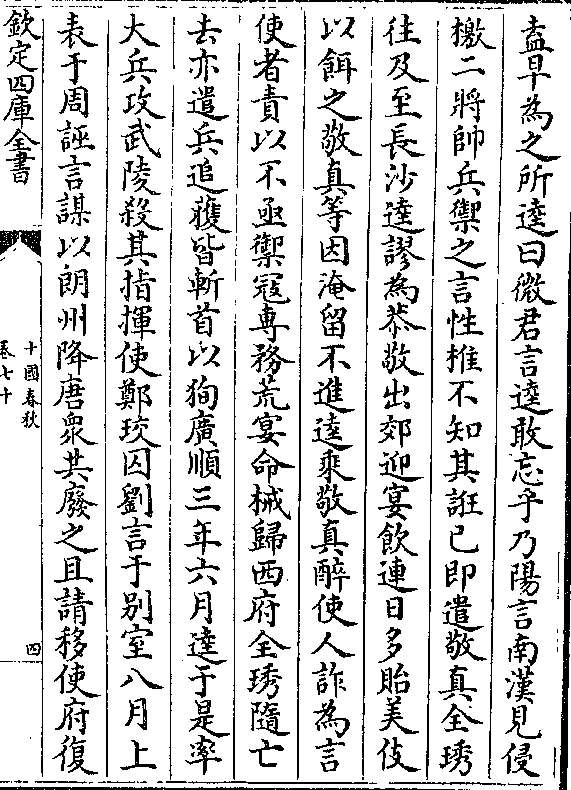 盍早為之所逵曰微君言逵敢忘乎乃陽言南漢見侵
檄二將帥兵禦之言性椎不知其誑已即遣敬真全琇
往及至長沙逵謬為恭敬出郊迎宴飲連日多貽美伎
以餌之敬真等因淹留不進逵乘敬真醉使人詐為言
使者責以不亟禦寇專務荒宴命械歸西府全琇隨亡
去亦遣兵追獲皆斬首以狥廣順三年六月逵于是率
大兵攻武陵殺其指揮使鄭珓囚劉言于别室八月上
表于周誣言謀以朗州降唐衆共廢之且請移使府復
欽定四庫全書
十國春秋
卷七十
四